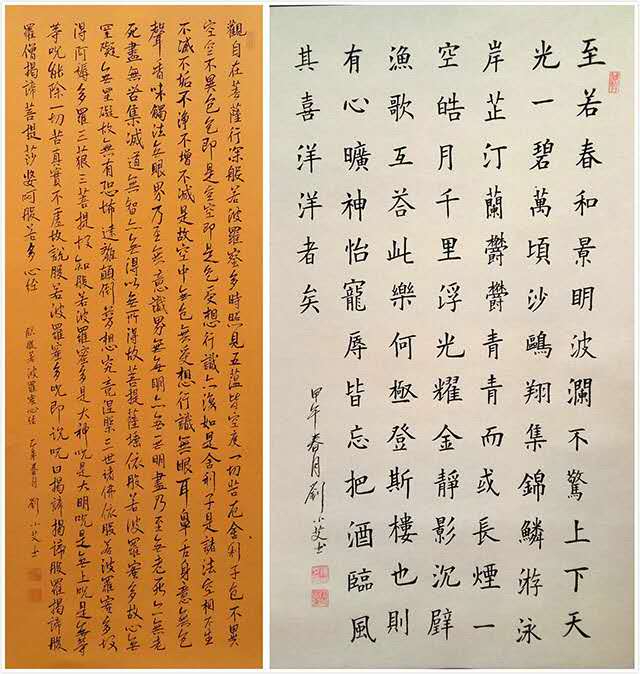 觀自在菩薩行深般若波羅蜜多時照見五蘊皆空度一切苦厄舍利子色不異
空空不異色色即是空空即是色受想行識亦復如是舍利子是諸法空相不生
不滅不垢不淨不增不減是故空中無色無受想行識無眼耳鼻舌身意無色
聲香味觸法無眼界乃至無意識界無無明亦無無明盡乃至無老死亦無老
死盡無苦集滅道無智亦無得以無所得故菩提薩埵依般若波羅蜜多故心無
罣礙無罣礙故無有恐怖遠離顛倒夢想究竟涅槃三世諸佛依般若波羅蜜多故
得阿耨多羅三藐三菩提故知般若波羅蜜多是大神咒是大明咒是無上咒是無等
等咒能除一切苦真實不虛故說般若波羅蜜多咒即說咒曰揭諦揭諦般羅揭諦般
羅僧揭諦菩提莎婆訶般若多心經
般若波羅蜜心經 乙未春月 劉小艾书
至若春和景明波瀾不驚上下天
光一碧萬頃沙鷗翔集錦鱗游泳
岸芷汀蘭鬱鬱青青而或長煙一
空皓月千里浮光耀金靜影沉璧
漁歌互荅此樂何極登斯樓也則
有心曠神怡寵辱皆忘把酒臨風
其喜洋洋者矣
甲午春月劉小艾书